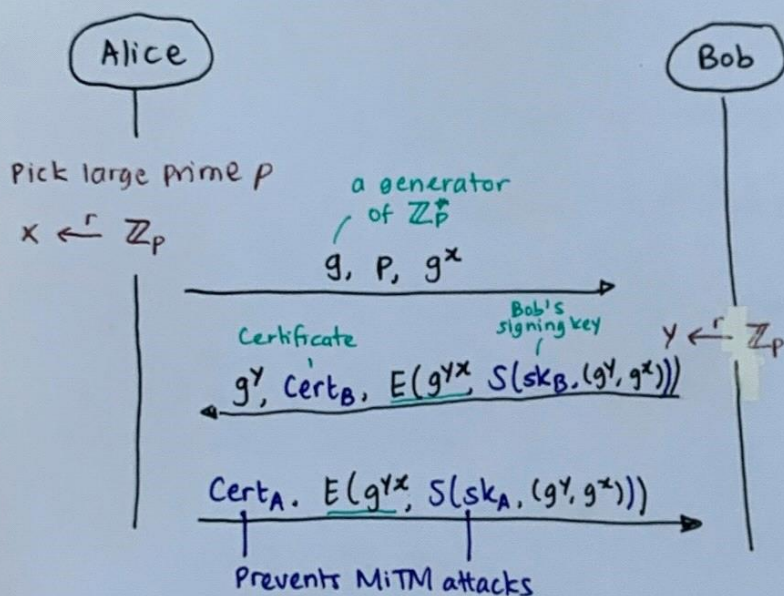 Alice
Bob
Pick large prime p
x ←r ℤp
a generator
of ℤ*p
g, p, gˣ
Certificate
Bob's
signing key
y ←r ℤp
gʸ, CertB, E(gʸˣ, S(skB, (gʸ, gˣ)))
CertA. E(gʸˣ, S(skA, (gʸ, gˣ)))
Prevents MiTM attacks